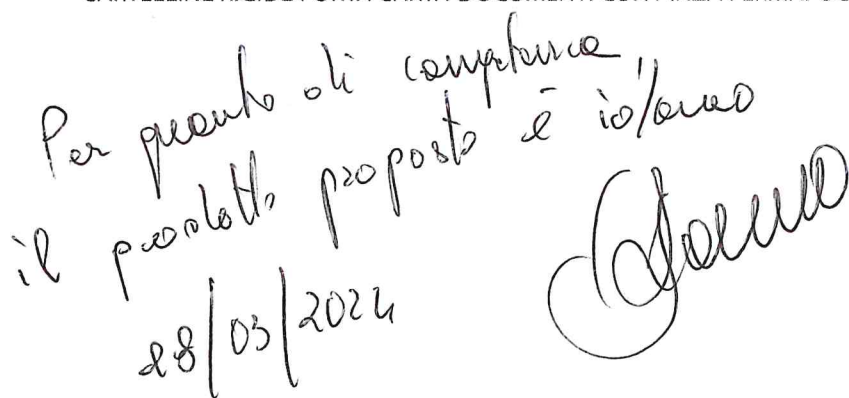 Per quanto di competenza,
il prodotto proposto è idoneo
28/03/2024